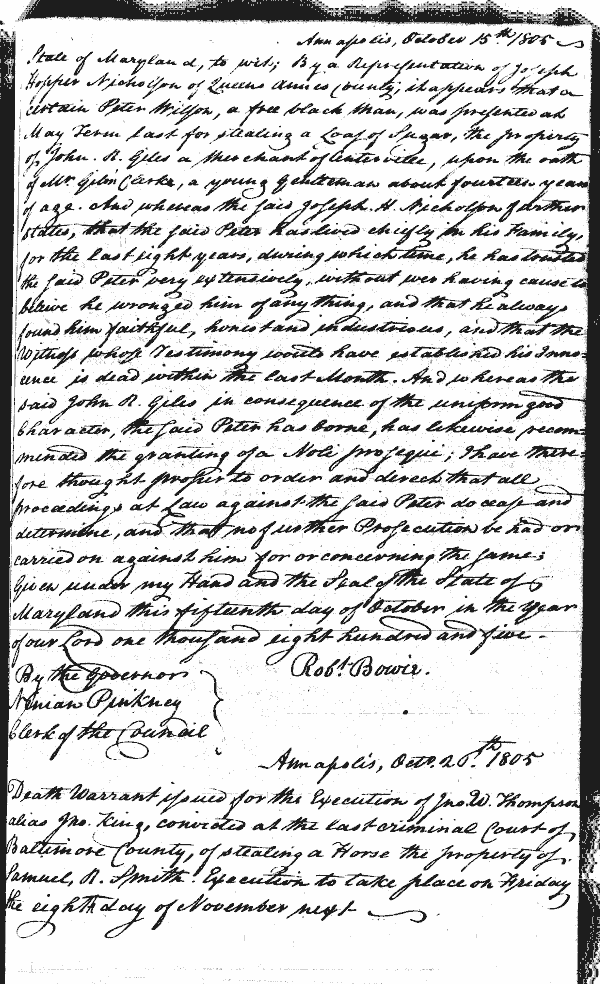 Annapolis, October 15th 1805
State of Maryland, to wit; By a Representation of Joseph
Hopper Nicholson of Queens Annes County; it appears that a
certain Peter Wilson, a free black man, was presented at
May Term last for stealing a Loaf of Sugar, the property
of John. R. Giles a Merchant of Centerville, upon the oath
of Mr. Clerke, a young gentleman about fourteen years
of age. And whereas the said Joseph. H. Nicholson further
states, that the said Peter has lived cheifly in his Family,
for the last eight years, during which time, he has trusted
the said Peter very extensively, without ever having cause to
belive he wronged him of any thing, and that he always
found him faithful, honest and industrious, and that the
Witness whose Testimony would have established his Inno=
cence is dead within the last Month. And whereas the
said John R. Giles in consequence of the uniform good
Character, the said Peter has borne, has likewise recom=
minded the granting of a Noli prosequi; I have there=
fore thought proper to order and direct that all
proceedings at Law against the said Peter do cease and
determine, and that no further Prosecution be had or
carried on against him for or concerning the same;
Given under my Hand and the Seal of the State of
Maryland this fifteenth day of October in the Year
of our Lord one thousand eight hundred and five.
By the Governor
Robt. Bowie.
Ninian Pinkney
Clerk of the Council
Annapolis, Octo. 20th. 1805
Death Warrant issued for the Execution of Jno. W. Thompson
alias Jno. King, convicted at the last criminal Court of
Baltimore County, of stealing a Horse the property of
Samuel, R. Smith. Execution to take place on Friday
the eighth day of November next